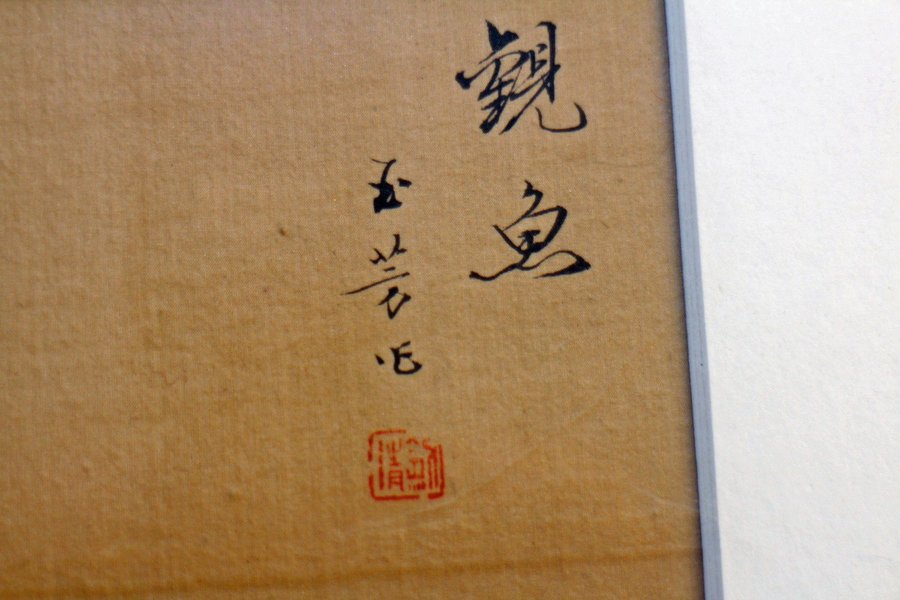 觀魚
玉芳作